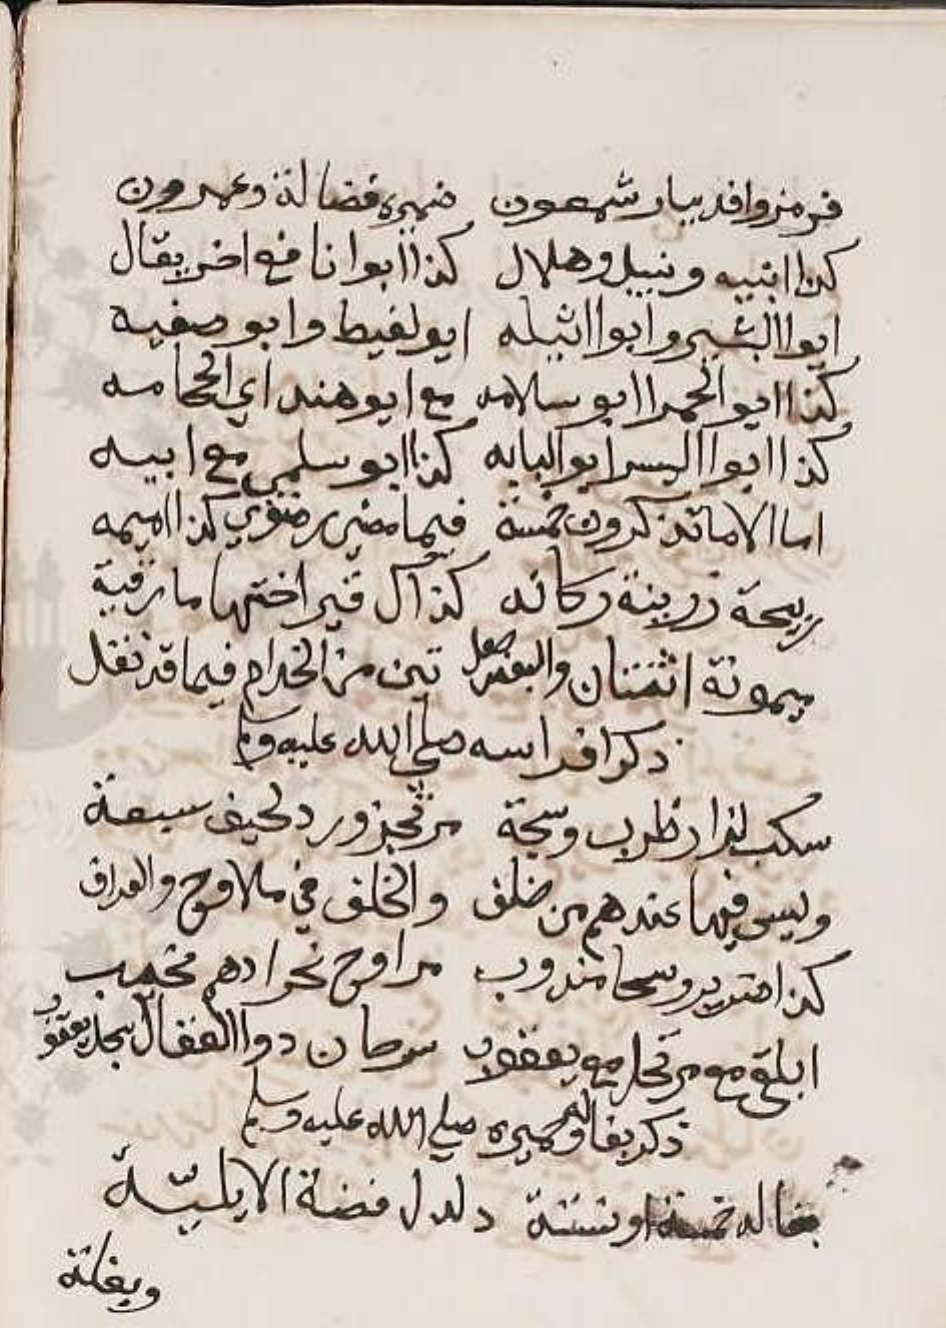 قرمز وافد يسار شمعون ضميره فضالة وعمرون
كذا انبيه ونبيل وهلال كذا ابوا نافع اخر يقال
ابوا البشير وابوا اثيله ابو لقيط وابو صفيه
كذا ابو الحمرا ابو سلامه مع ابو هند اي الحجامه
كذا ابوا اليسر ابو البابه كذا ابو سلمى مع ابيه
اما الاما تذكرون خمسة فيما مضى رضوى كذا اميمه
ربيحة زرينة ركانه كذاك قيسر اختها مارقية
ميمونة اثنتان والبعض تين من الخدام فيما قد نقل
ذكر افراسه صلى الله عليه وسلم
سكب لزاز ظرب وسبحة مرتجز ورد لحيف سبعة
وليس فيها عندهم من خلف والخلف في ملاوح و
كذا مندوب مراوح نجرادهم نجيب
ابلق مع مرتجل مع يعقوب سرحان ذوا العقال
ذكر بغاله وحميره صلى الله عليه وسلم
بغاله خمسة او ستة دلدل فضة الايليّة
وبغلة